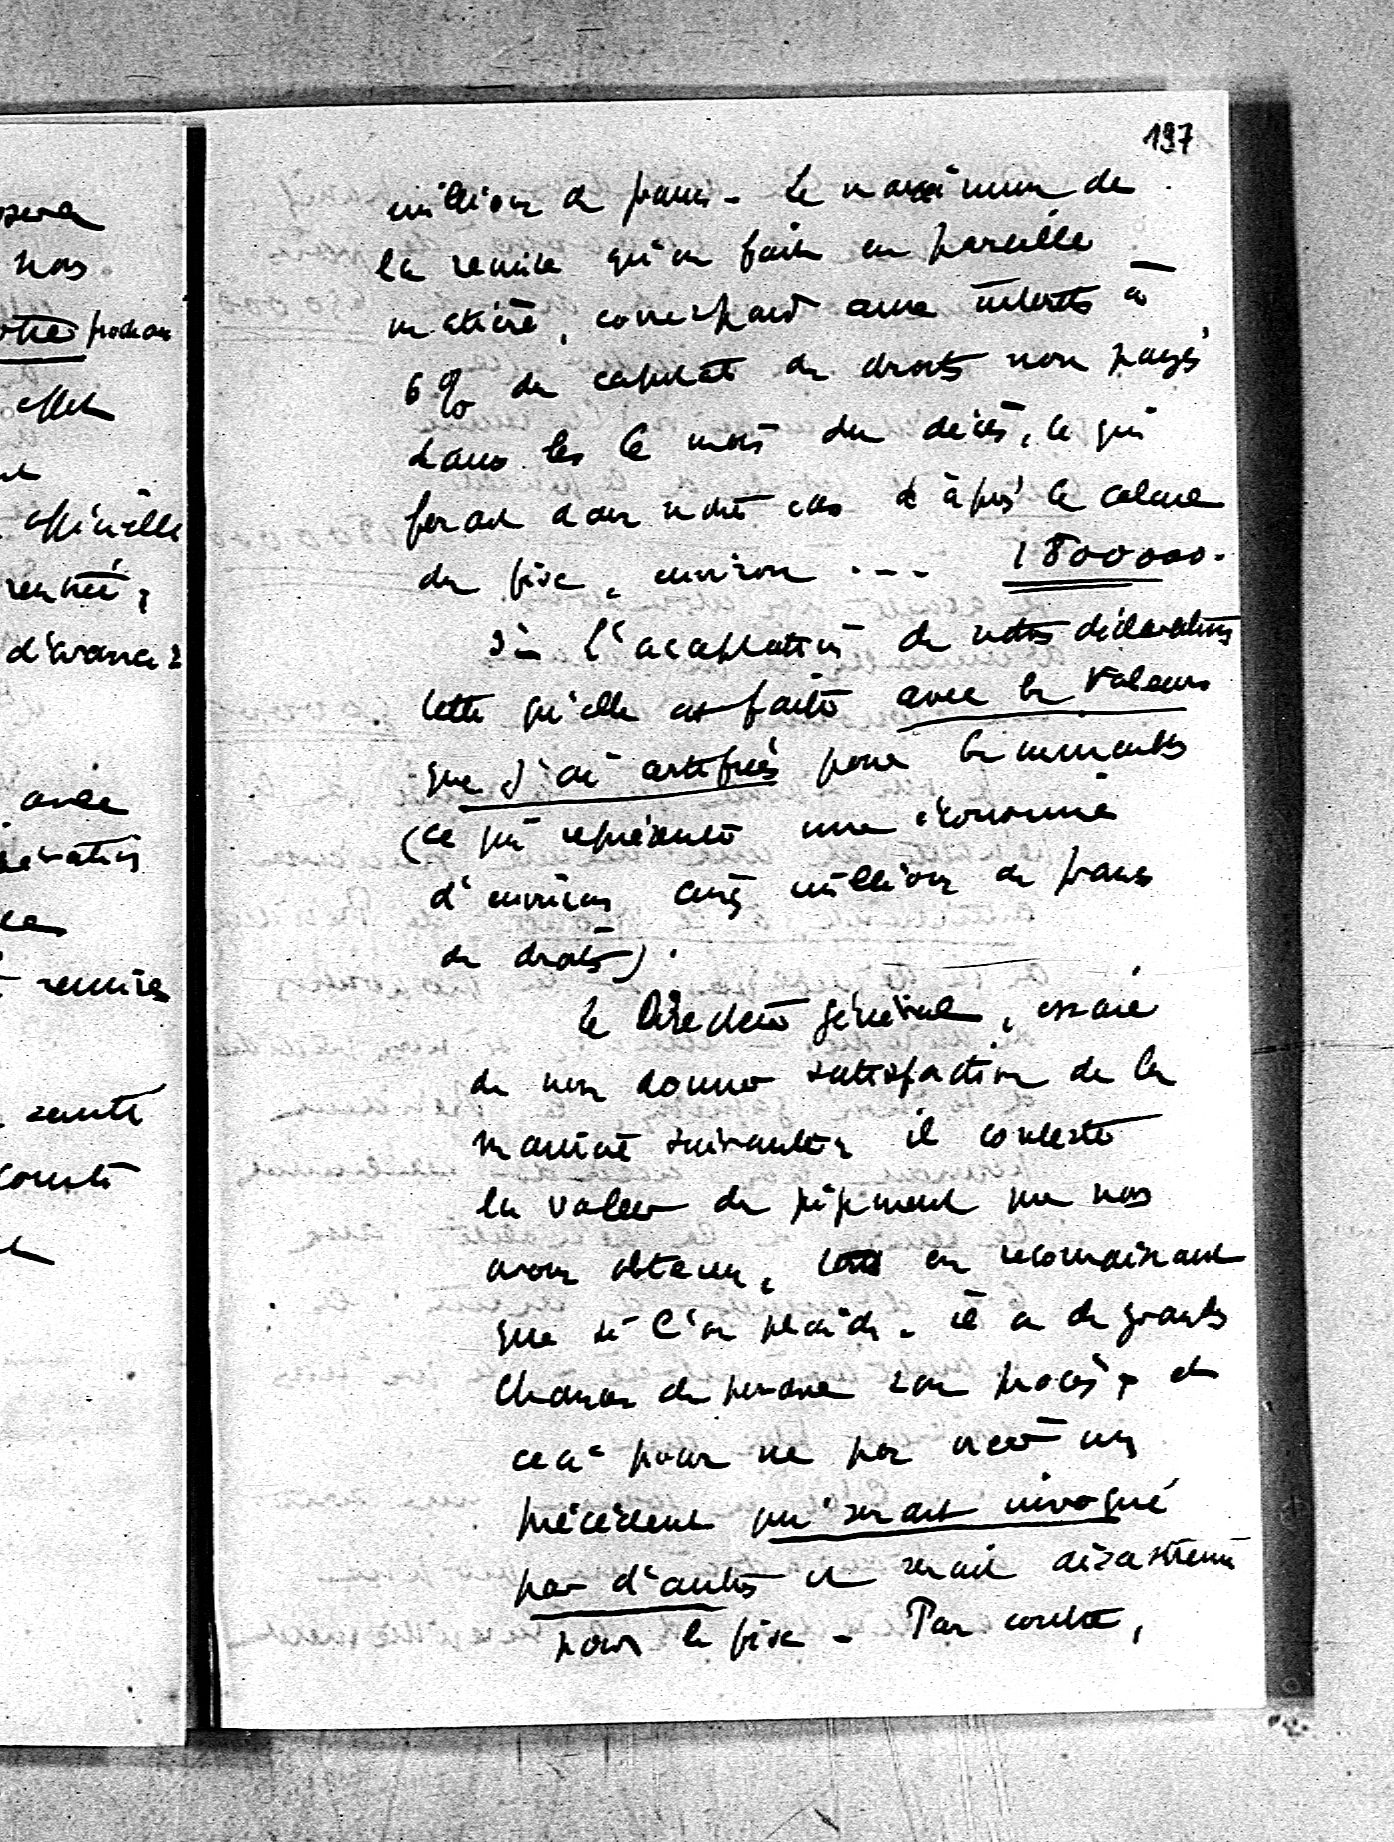 197
millions de francs. Le maximum de
la remise qu'on fait en pareille
matière, correspond aux intérêts à
6 % du capital de droits non payés
dans les 6 mois du décès, ce qui
ferait dans notre cas d'après le calcul
du fisc, environ ... 1800000.
3i l'acceptation de notre déclaration
telle qu'elle est faite avec les valeurs
que j'ai pour les immeubles
(ce qui représente une économie
d'environ cinq millions de francs
de droits).
Le Directeur général, essaie
de nous donner satisfaction de la
manière suivante, il conteste
la valeur du jugement que nous
avons obtenu, tout en reconnaissant
que si l'on plaide, il a de grandes
chances de perdre son procès, et
ceci pour ne pas créer un
précédent qui serait invoqué
par d'autres et serait désastreux
pour le fisc - Par contre,
nos
offic
officielle
rentrée,
d'avance
avec
remises
santé